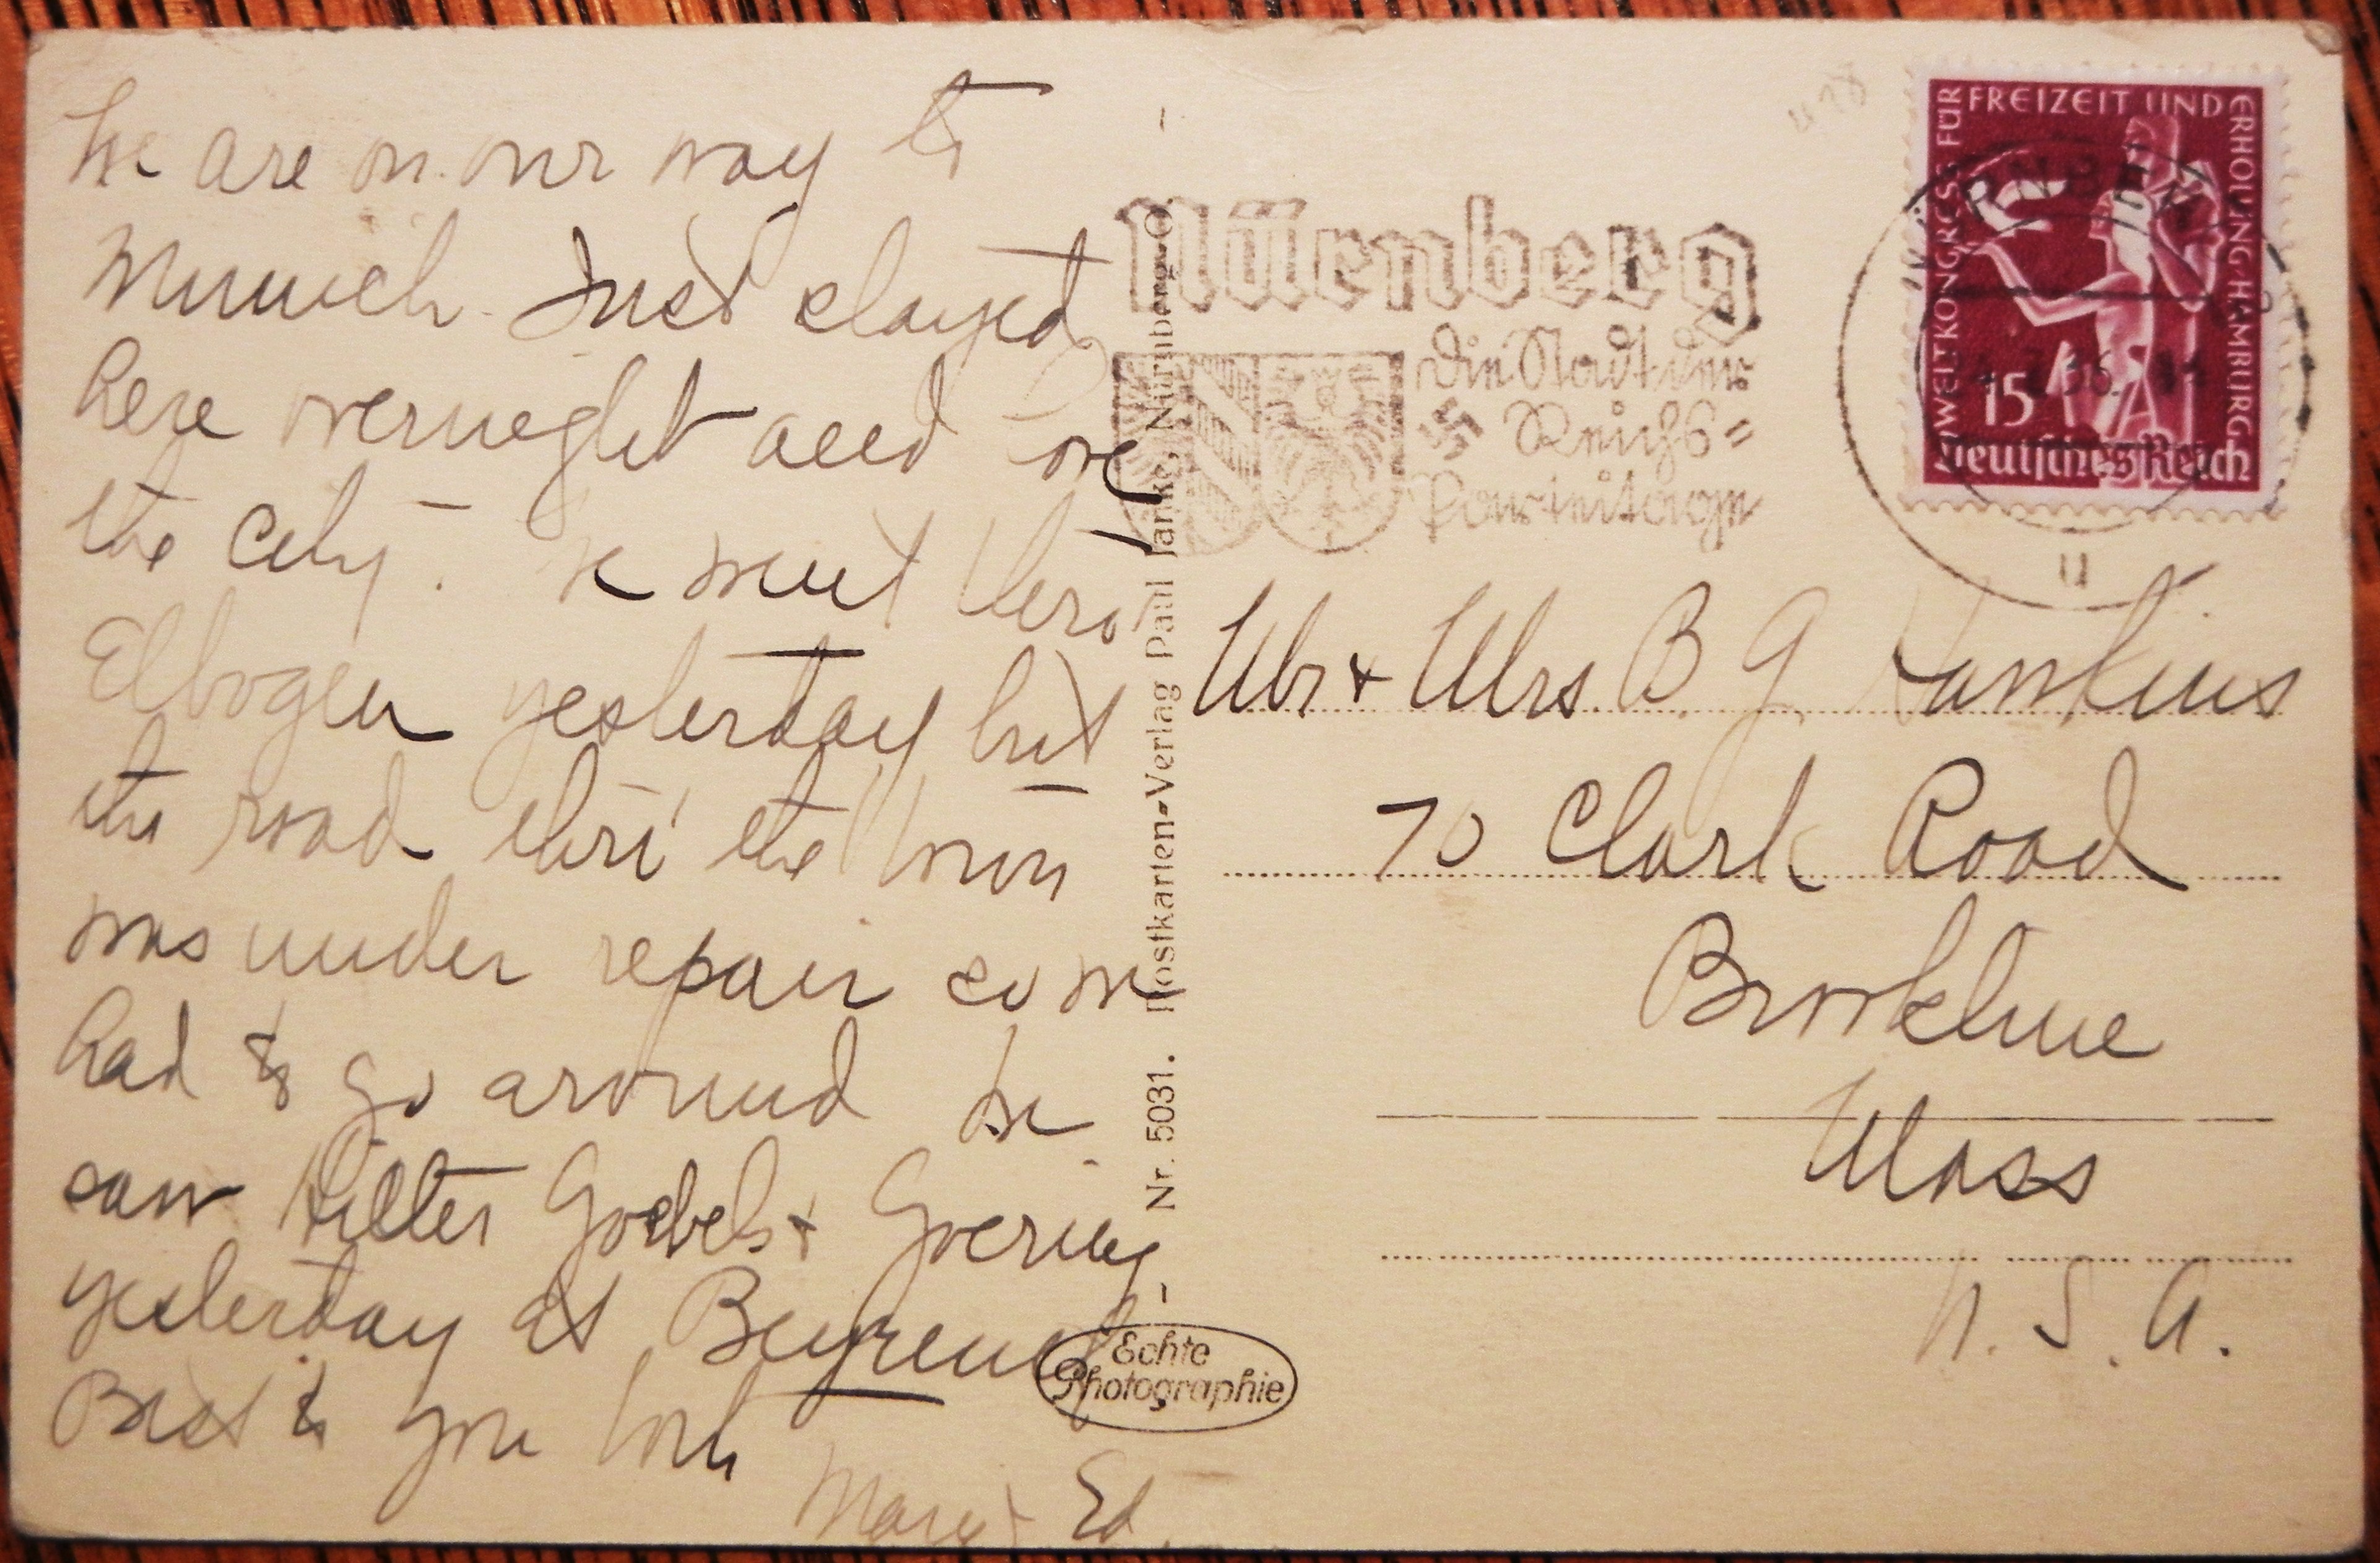 We are on our way to
Munich. Just stayed
here overnight and love
the city. We went thro
Elbogen yesterday but
the road thru the town
was under repair so we
had to go around. We
saw Hitler Goebels + Goering
yesterday at Beyreuth
Best to you both
Mary + Ed.
Nr. 5031. Postkarten-Verlag Paul Janke, Nürnberg-O
Echte
Photographie
Nürnberg
Die Stadt der
Reichs=
Parteitage
WELTKONGRESS FÜR
FREIZEIT UND
ERHOLUNG·HAMBURG
15
Deutsches Reich
NÜRNBERG
36
u
Mr + Mrs. B. G. Hawkins
70 Clark Road
Brookline
Mass
U. S. A.